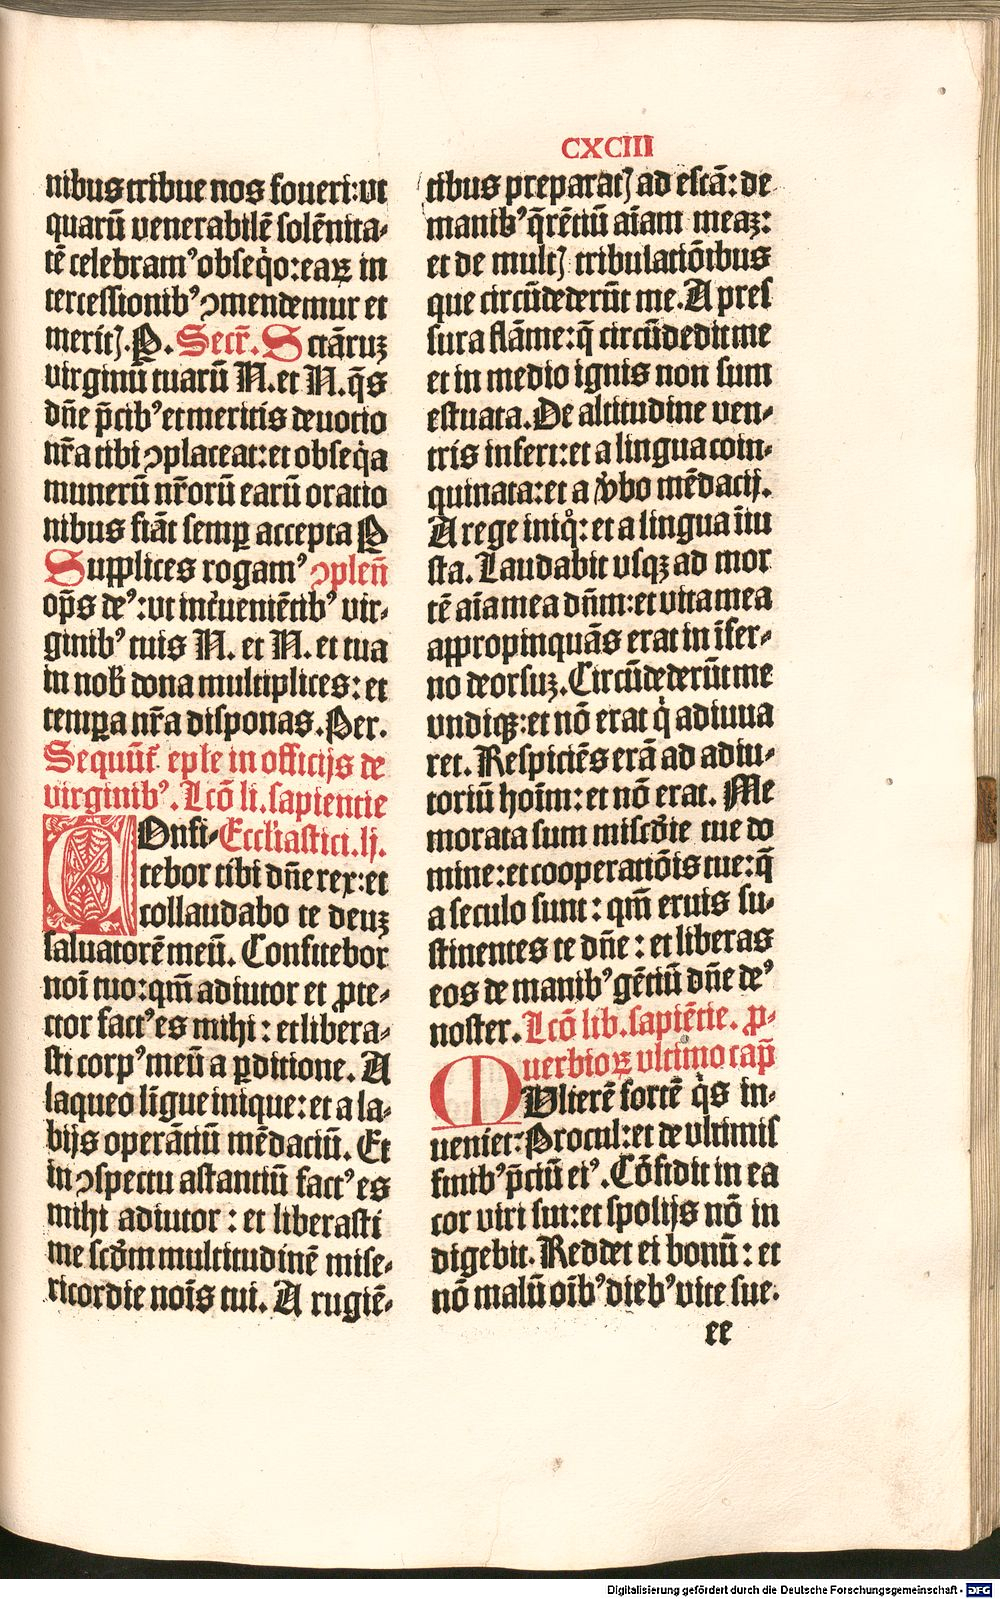 CXCIII
nibus tribue nos foueri: vt
quarū venerabilē solēnita-
tē celebram⁹ obseq̇o: earꝝ in
tercessionib⁹ ꝯmendemur et
meritꝭ. P. Secr̄. Sctāruꝫ
virginū tuarū N. et N. q̄s
dn̄e p̄cib⁹ et meritis deuotio
nr̄a tibi ꝯplaceat: et obseq̇a
munerū nr̄orū earū oratio
nibus fiāt semꝑ accepta P
Supplices rogam⁹ ꝯplen̄
op̄s de⁹: vt int̄uenietib⁹ vir-
ginib⁹ tuis N. et N. et tua
in nob̄ dona multiplices: et
tempꝑa nr̄a disponas. Per.
Sequūt̄ ep̄le in officijs de
virginib⁹. Lcō li. sapientie
Onfi- Eccl̄iastici. lj.
tebor tibi dn̄e rex: et
collaudabo te deuꝫ
saluatorē meū. Confitebor
noī tuo: qm̄ adiutor et ꝓte-
ctor fact⁹ es mihi: et libera-
sti corp⁹ meū a ꝑditione. A
laqueo līgue inique: et a la-
bijs operātiū mēdaciū. Et
in ꝯspectu astantiū fact⁹ es
mihi adiutor: et liberasti
me scd̄m multitudinē mise-
ricordie noīs tui. A rugiē-
tibus preparatꝭ ad escā: de
manib⁹ q̄rētiū aīam meaꝫ:
et de multꝭ tribulatiōibus
que circūdederūt me. A pres
sura flāme: q̄ circūdedit me
et in medio ignis non sum
estuata. De altitudine ven-
tris inferi: et a lingua coin-
quinata: et a v̄bo mēdacij.
A rege iniq̊: et a lingua iīu
sta. Laudabit vsqꝫ ad mor
tē aīa mea dn̄m: et vita mea
appropinquās erat in īfer-
no deorsuꝫ. Circūdederūt me
vndiqꝫ: et nō erat q̇ adiuua
ret. Respiciēs erā ad adiu-
toriū hoīm: et nō erat. Me
morata sum misc̄die tue do
mine: et cooperatiōis tue: q̄
a seculo sunt: qm̄ eruis su-
stinentes te dn̄e: et liberas
eos de manib⁹ gētiū dn̄e de⁹
noster. Lcō lib. sapiētie. ꝓ-
uerbioꝝ vltimo cap̄
MVlierē fortē q̇s in-
ueniet: Procul: et de vltimis
finib⁹ p̄ciū ei⁹. Cōfidit in ea
cor viri sui: et spolijs nō in
digebit. Reddet ei bonū: et
nō malū oīb⁹ dieb⁹ vite sue.
ee
Digitalisierung gefördert durch die Deutsche Forschungsgemeinschaft - DFG